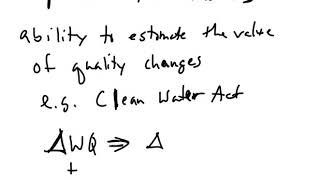 ability to estimate the value
of quality changes
e.g. Clean Water Act
ΔWQ ⇒ Δ
+